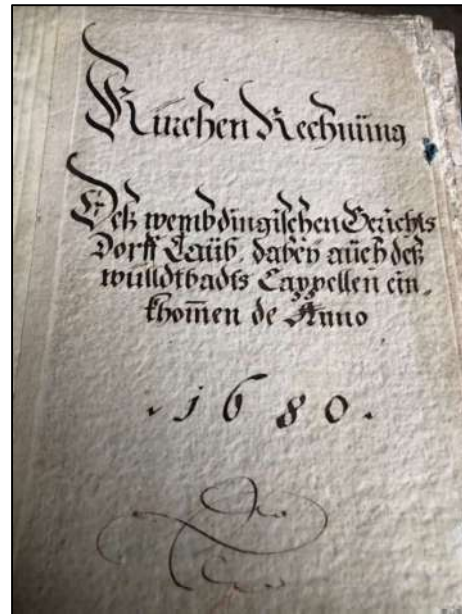 Kürchen Rechnüng
Deß wembdingischen Gerichts
Dorff Laüb, dabeÿ aüch deß
wülldtbadts Cappellen ein-
khom̄en de Anno
. 1 6 8 0 .